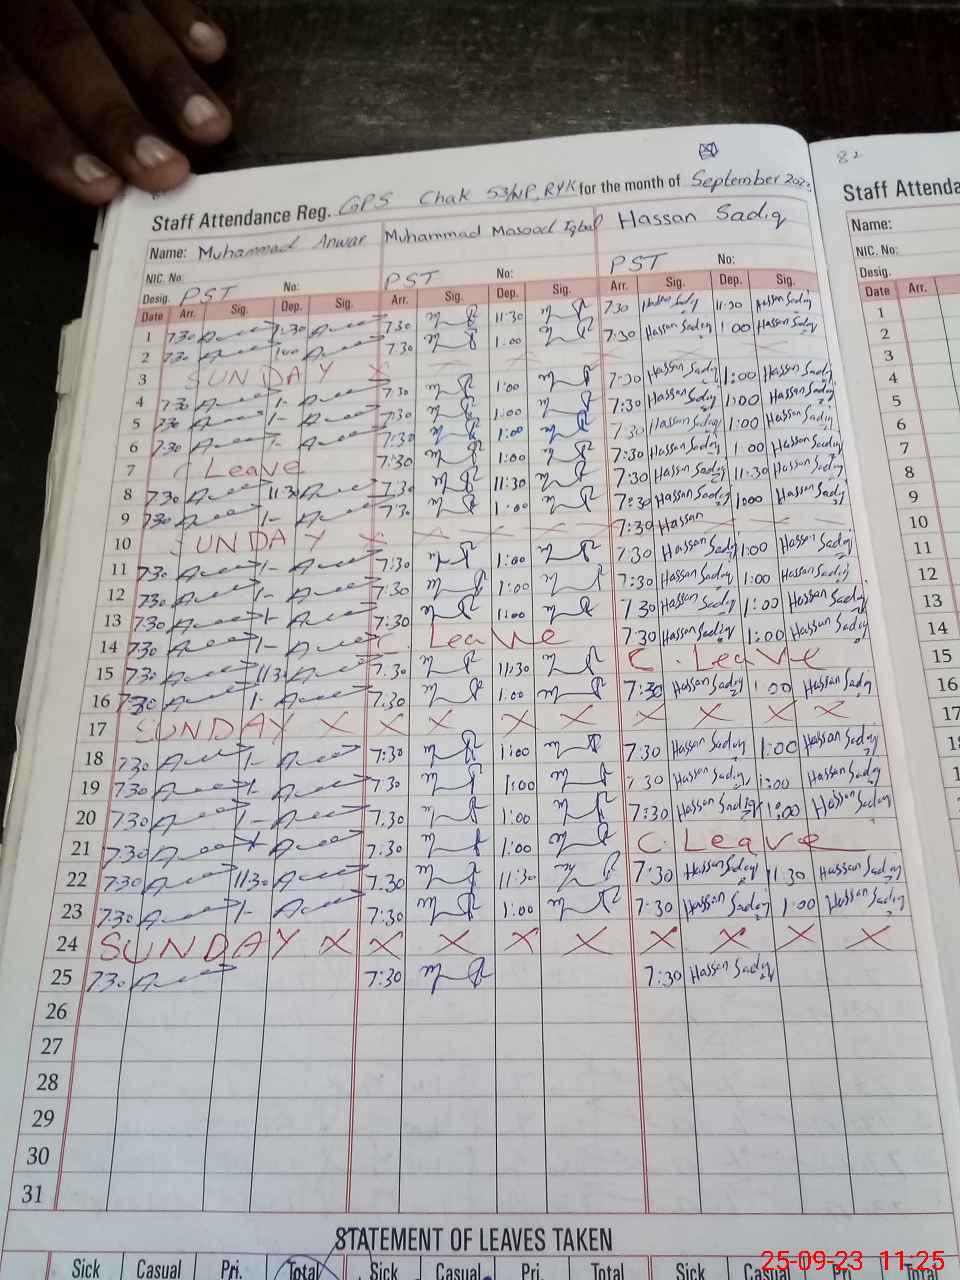 82
Staff Attendance Reg. GPS Chak 53/NP, RYK for the month of September 2023
Staff Attenda
Name: Muhammad Anwar Muhammad Masood Iqbal Hassan Sadiq
Name:
NIC. No:
NIC. No:
Desig. PST No: PST No: PST No:
Desig.
Date Arr. Sig. Dep. Sig. Arr. Sig. Dep. Sig. Arr. Sig. Dep. Sig.
Date Arr.
1 7:30 1:30 7:30 11:30 7:30 Hassan Sadiq 11:30 Hassan Sadiq
2 7:30 1:00 7:30 1:00 7:30 Hassan Sadiq 1:00 Hassan Sadiq
3 SUNDAY X X X X X X X X
4 7:30 1- 7:30 1:00 7:30 Hassan Sadiq 1:00 Hassan Sadiq
5 7:30 1- 7:30 1:00 7:30 Hassan Sadiq 1:00 Hassan Sadiq
6 7:30 1- 7:30 1:00 7:30 Hassan Sadiq 1:00 Hassan Sadiq
7 C Leave 7:30 1:00 7:30 Hassan Sadiq 1:00 Hassan Sadiq
8 7:30 11:30 7:30 11:30 7:30 Hassan Sadiq 11:30 Hassan Sadiq
9 7:30 1- 7:30 1:00 7:30 Hassan Sadiq 1:00 Hassan Sadiq
10 SUNDAY X X X X X 7:30 Hassan
11 7:30 1- 7:30 1:00 7:30 Hassan Sadiq 1:00 Hassan Sadiq
12 7:30 1- 7:30 1:00 7:30 Hassan Sadiq 1:00 Hassan Sadiq
13 7:30 1- 7:30 1:00 7:30 Hassan Sadiq 1:00 Hassan Sadiq
14 7:30 1- C. Leave 7:30 Hassan Sadiq 1:00 Hassan Sadiq
15 7:30 11:30 7:30 11:30 C. Leave
16 7:30 1- 7:30 1:00 7:30 Hassan Sadiq 1:00 Hassan Sadiq
17 SUNDAY X X X X X X X X X
18 7:30 1- 7:30 1:00 7:30 Hassan Sadiq 1:00 Hassan Sadiq
19 7:30 1- 7:30 1:00 7:30 Hassan Sadiq 1:00 Hassan Sadiq
20 7:30 1- 7:30 1:00 7:30 Hassan Sadiq 1:00 Hassan Sadiq
21 7:30 7:30 1:00 C. Leave
22 7:30 11:30 7:30 11:30 7:30 Hassan Sadiq 11:30 Hassan Sadiq
23 7:30 1- 7:30 1:00 7:30 Hassan Sadiq 1:00 Hassan Sadiq
24 SUNDAY X X X X X X X X X
25 7:30 7:30 7:30 Hassan Sadiq
26
27
28
29
30
31
1
2
3
4
5
6
7
8
9
10
11
12
13
14
15
16
17
STATEMENT OF LEAVES TAKEN
Sick Casual Pri. Total Sick Casual Pri. Total Sick Casual Pri. Total
25-09-23 11:25